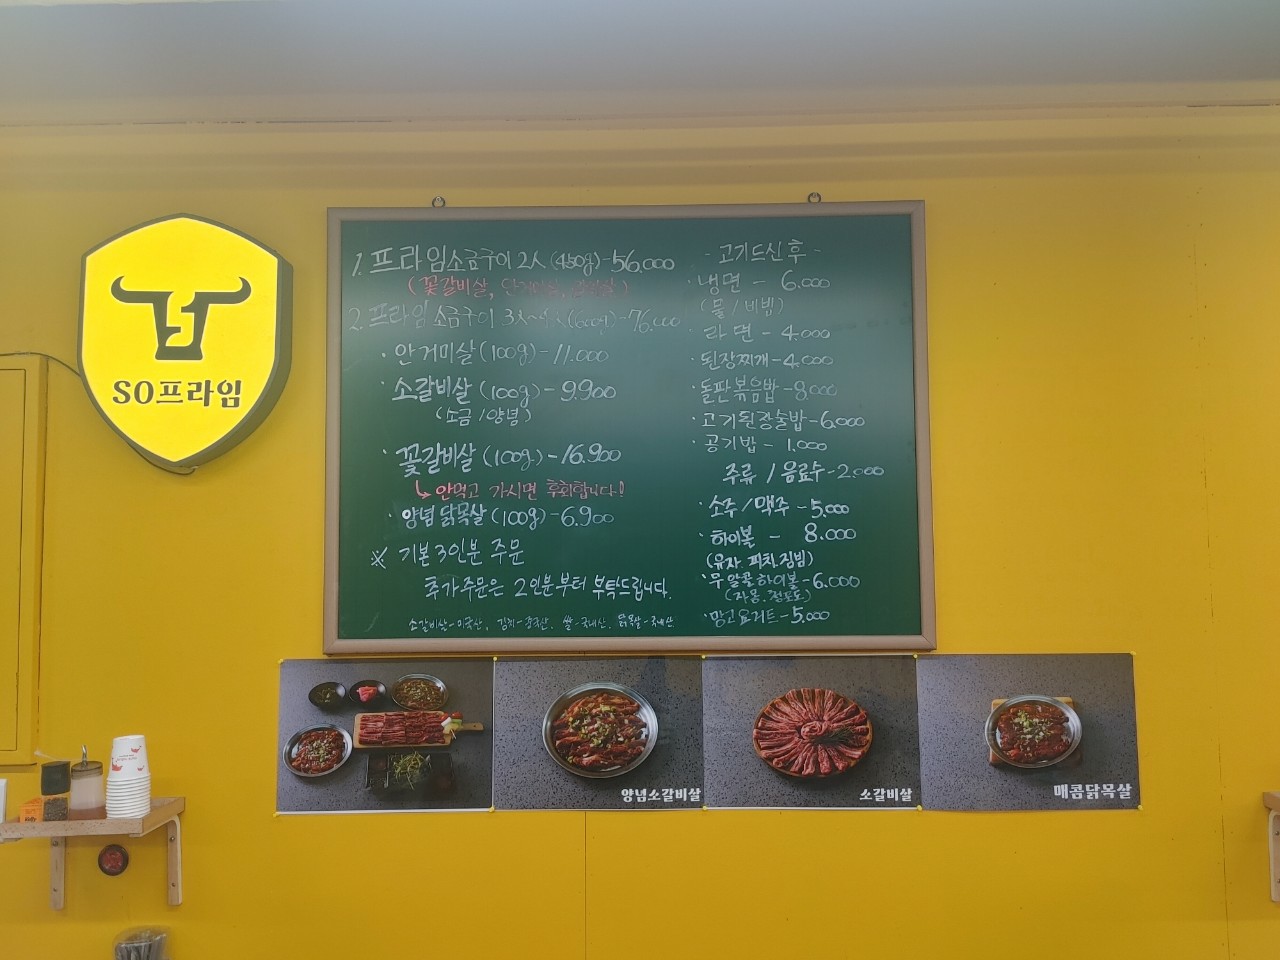 SO프라임
1. 프라임소금구이 2人 (450g)-56.000
(꽃갈비살, 안거미살,
2. 프라임 소금구이 3人~ (600g)-76.000
· 안거미살(100g)-11.000
· 소갈비살(100g)-9.900
(소금/양념)
· 꽃갈비살(100g)-16.900
↳ 안먹고 가시면 후회합니다!
· 양념닭목살(100g)-6.900
※ 기본3인분 주문
추가주문은 2인분부터 부탁드립니다.
소갈비살-미국산, 김치-중국산, 쌀-국내산, 닭목살-국내산
-고기드신후-
· 냉면 - 6.000
(물/비빔)
· 라면 - 4.000
· 된장찌개-4.000
· 돌판볶음밥-8.000
· 고기된장술밥-6.000
· 공기밥 - 1.000
주류 / 음료수-2.000
· 소주/맥주 -5.000
· 하이볼 - 8.000
(유자.피치.짐빔)
· 무알콜하이볼-6.000
(자몽.청포도)
· 망고요거트-5.000
양념소갈비살
소갈비살
매콤닭목살